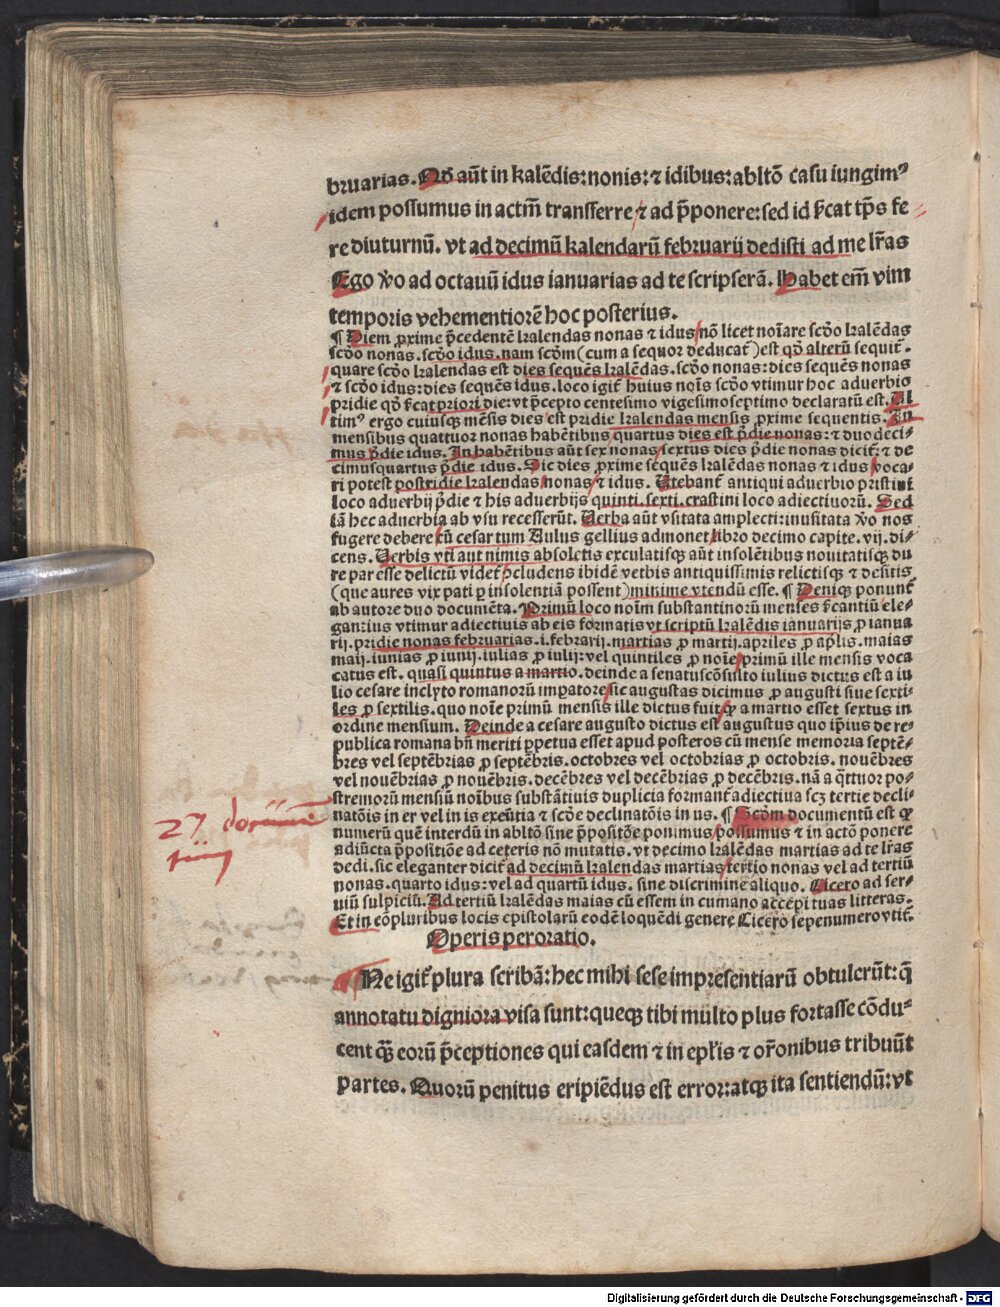 bruarias. Nō aūt in kalēdis: nonis: ⁊ idibus: abltō casu iungimꝰ
idem possumus in actm̄ transferre ⁊ ad p̄ponere: sed id f̄cat tp̄s fe
re diuturnū. vt ad decimū kalendarū februarij dedisti ad me lr̄as
Ego v̄o ad octauū idus ianuarias ad te scripserā. Habet em̄ vim
temporis vehementiorē hoc posterius.
¶ Diem ꝓxime p̄cedentē kalendas nonas ⁊ idus nō licet noīare scd̄o kalēdas
scd̄o nonas. scd̄o idus. nam scd̄m (cum a sequor deducat̄) est qd̄ alterū sequit̄.
quare scd̄o kalendas est dies sequēs kalēdas. scd̄o nonas: dies sequēs nonas
⁊ scd̄o idus: dies sequēs idus. loco igit̄ huius noīs scd̄o vtimur hoc aduerbio
pridie qd̄ f̄cat priori die: vt p̄cepto centesimo vigesimoseptimo declaratū est. Ul
timꝰ ergo cuiusq̄ mēsis dies est pridie kalendas mensis ꝓxime sequentis. In
mensibus quattuor nonas habētibus quartus dies est p̄die nonas: ⁊ duodeci-
mus p̄die idus. In habētibus aūt sex nonas sextus dies p̄die nonas dicit̄: ⁊ de
cimusquartus p̄die idus. Sic dies ꝓxime sequēs kalēdas nonas ⁊ idus voca-
ri potest postridie kalendas nonas ⁊ idus. Utebant̄ antiqui aduerbio pristini
loco aduerbij p̄die ⁊ his aduerbijs quinti. sexti. crastini loco adiectiuorū. Sed
iā hec aduerbia ab vsu recesserūt. Uerba aūt vsitata amplecti: inusitata v̄o nos
fugere debere cū cesar tum Aulus gellius admonet libro decimo capite. vij. di-
cens. Uerbis vti aut nimis absoletis exculatisqꝫ aūt insolētibus nouitatisqꝫ du
re par esse delictū videt̄ ꝑcludens ibidē verbis antiquissimis relictisqꝫ ⁊ desitis
(que aures vix pati ꝑ insolentiā possent) minime vtendū esse. ¶ Deniqꝫ ponunt̄
ab autore duo documēta. Primū loco noīm substantinorū menses f̄cantiū ele-
gantius vtimur adiectiuis ab eis formatis vt scriptū kalēdis ianuarijs ꝓ ianua
rij. pridie nonas februarias. i. febrarij. martias ꝓ martij. apriles ꝓ ap̄lis. maias
maij. iunias ꝓ iunij. iulias ꝓ iulij: vel quintiles ꝓ noīe primū ille mensis voca
catus est. quasi quintus a martio. deinde a senatuscōsulto iulius dictus est a iu
lio cesare inclyto romanorū imp̄atore sic augustas dicimus ꝓ augusti siue sexti-
les ꝓ sextilis. quo noīe primū mensis ille dictus fuit qꝫ a martio esset sextus in
ordine mensium. Deinde a cesare augusto dictus est augustus quo ip̄ius de re-
publica romana bn̄ meriti ꝑpetua esset apud posteros cū mense memoria septē-
bres vel septēbrias ꝓ septēbris. octobres vel octobrias ꝓ octobris. nouēbres
vel nouēbrias ꝓ nouēbris. decēbres vel decēbrias ꝓ decēbris. nā a q̄ttuor po-
stremorū mensiū noībus substātiuis duplicia formant̄ adiectiua scꝫ tertie decli-
natōis in er vel in is exeūtia ⁊ scd̄e declinatōis in us. ¶ Scd̄m documentū est qꝫ
numerū quē interdū in abltō sine p̄positōe ponimus possumus ⁊ in actō ponere
adiūcta p̄positiōe ad ceteris nō mutatis. vt decimo kalēdas martias ad te lr̄as
dedi. sic eleganter dicit̄ ad decimū kalendas martias tertio nonas vel ad tertiū
nonas. quarto idus: vel ad quartū idus. sine discrimine aliquo. Cicero ad ser-
uiū sulpiciū. Ad tertiū kalēdas maias cū essem in cumano accepi tuas litteras.
Et in cōpluribus locis epistolarū eodē loquēdi genere Cicero sepenumero vtit̄.
Operis peroratio.
Ne igit̄ plura scribā: hec mihi sese impresentiarū obtulerūt: q̄
annotatu digniora visa sunt: queqꝫ tibi multo plus fortasse cōdu-
cent qꝫ̄ eorū p̄ceptiones qui easdem ⁊ in epl̄is ⁊ or̄onibus tribuūt
partes. Quorū penitus eripiēdus est error: atqꝫ ita sentiendū: vt
27
Digitalisierung gefördert durch die Deutsche Forschungsgemeinschaft - DFG